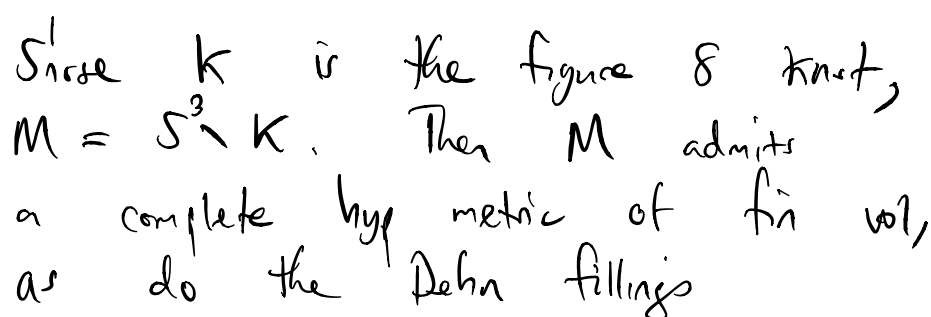 K is the figure 8 knot,
M = S³ \ K. Then M admits
a complete hyp metric of fin vol,
as do the Dehn fillings